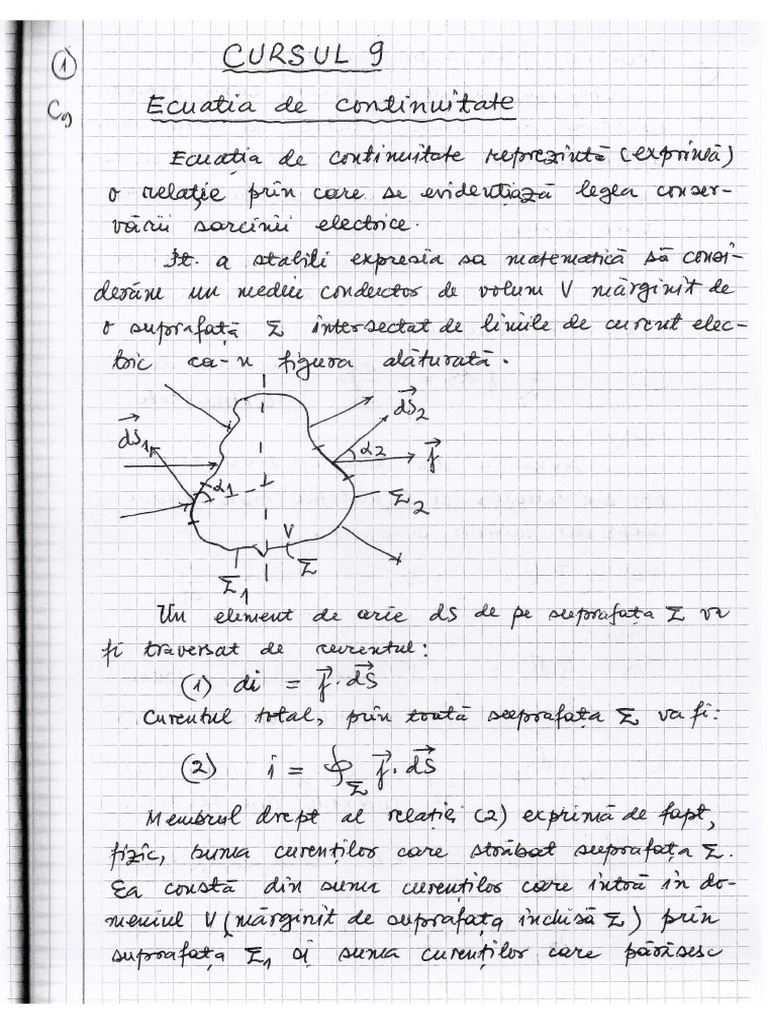 ① CURSUL 9
C₉ Ecuatia de continuitate
Ecuația de continuitate reprezintă (exprimă)
o relație prin care se evidențiază legea conser-
vării sarcinii electrice.
Pt. a stabili expresia sa matematică să consi-
derăm un mediu conductor de volum V mărginit de
o suprafață Σ intersectat de liniile de curent elec-
tric ca-n figura alăturată.
dS⃗₁ α₁ dS⃗₂ α₂ j⃗
Σ₂
V
Σ₁ Σ
Un element de arie dS de pe suprafața Σ va
fi traversat de curentul:
(1) di = j⃗·dS⃗
Curentul total, prin toată suprafața Σ va fi:
(2) i = ∮_Σ j⃗·dS⃗
Membrul drept al relației (2) exprimă de fapt,
fizic, suma curenților care străbat suprafața Σ.
Ea constă din suma curenților care intră în do-
meniul V (mărginit de suprafața închisă Σ) prin
suprafața Σ₁ și suma curenților care părăsesc